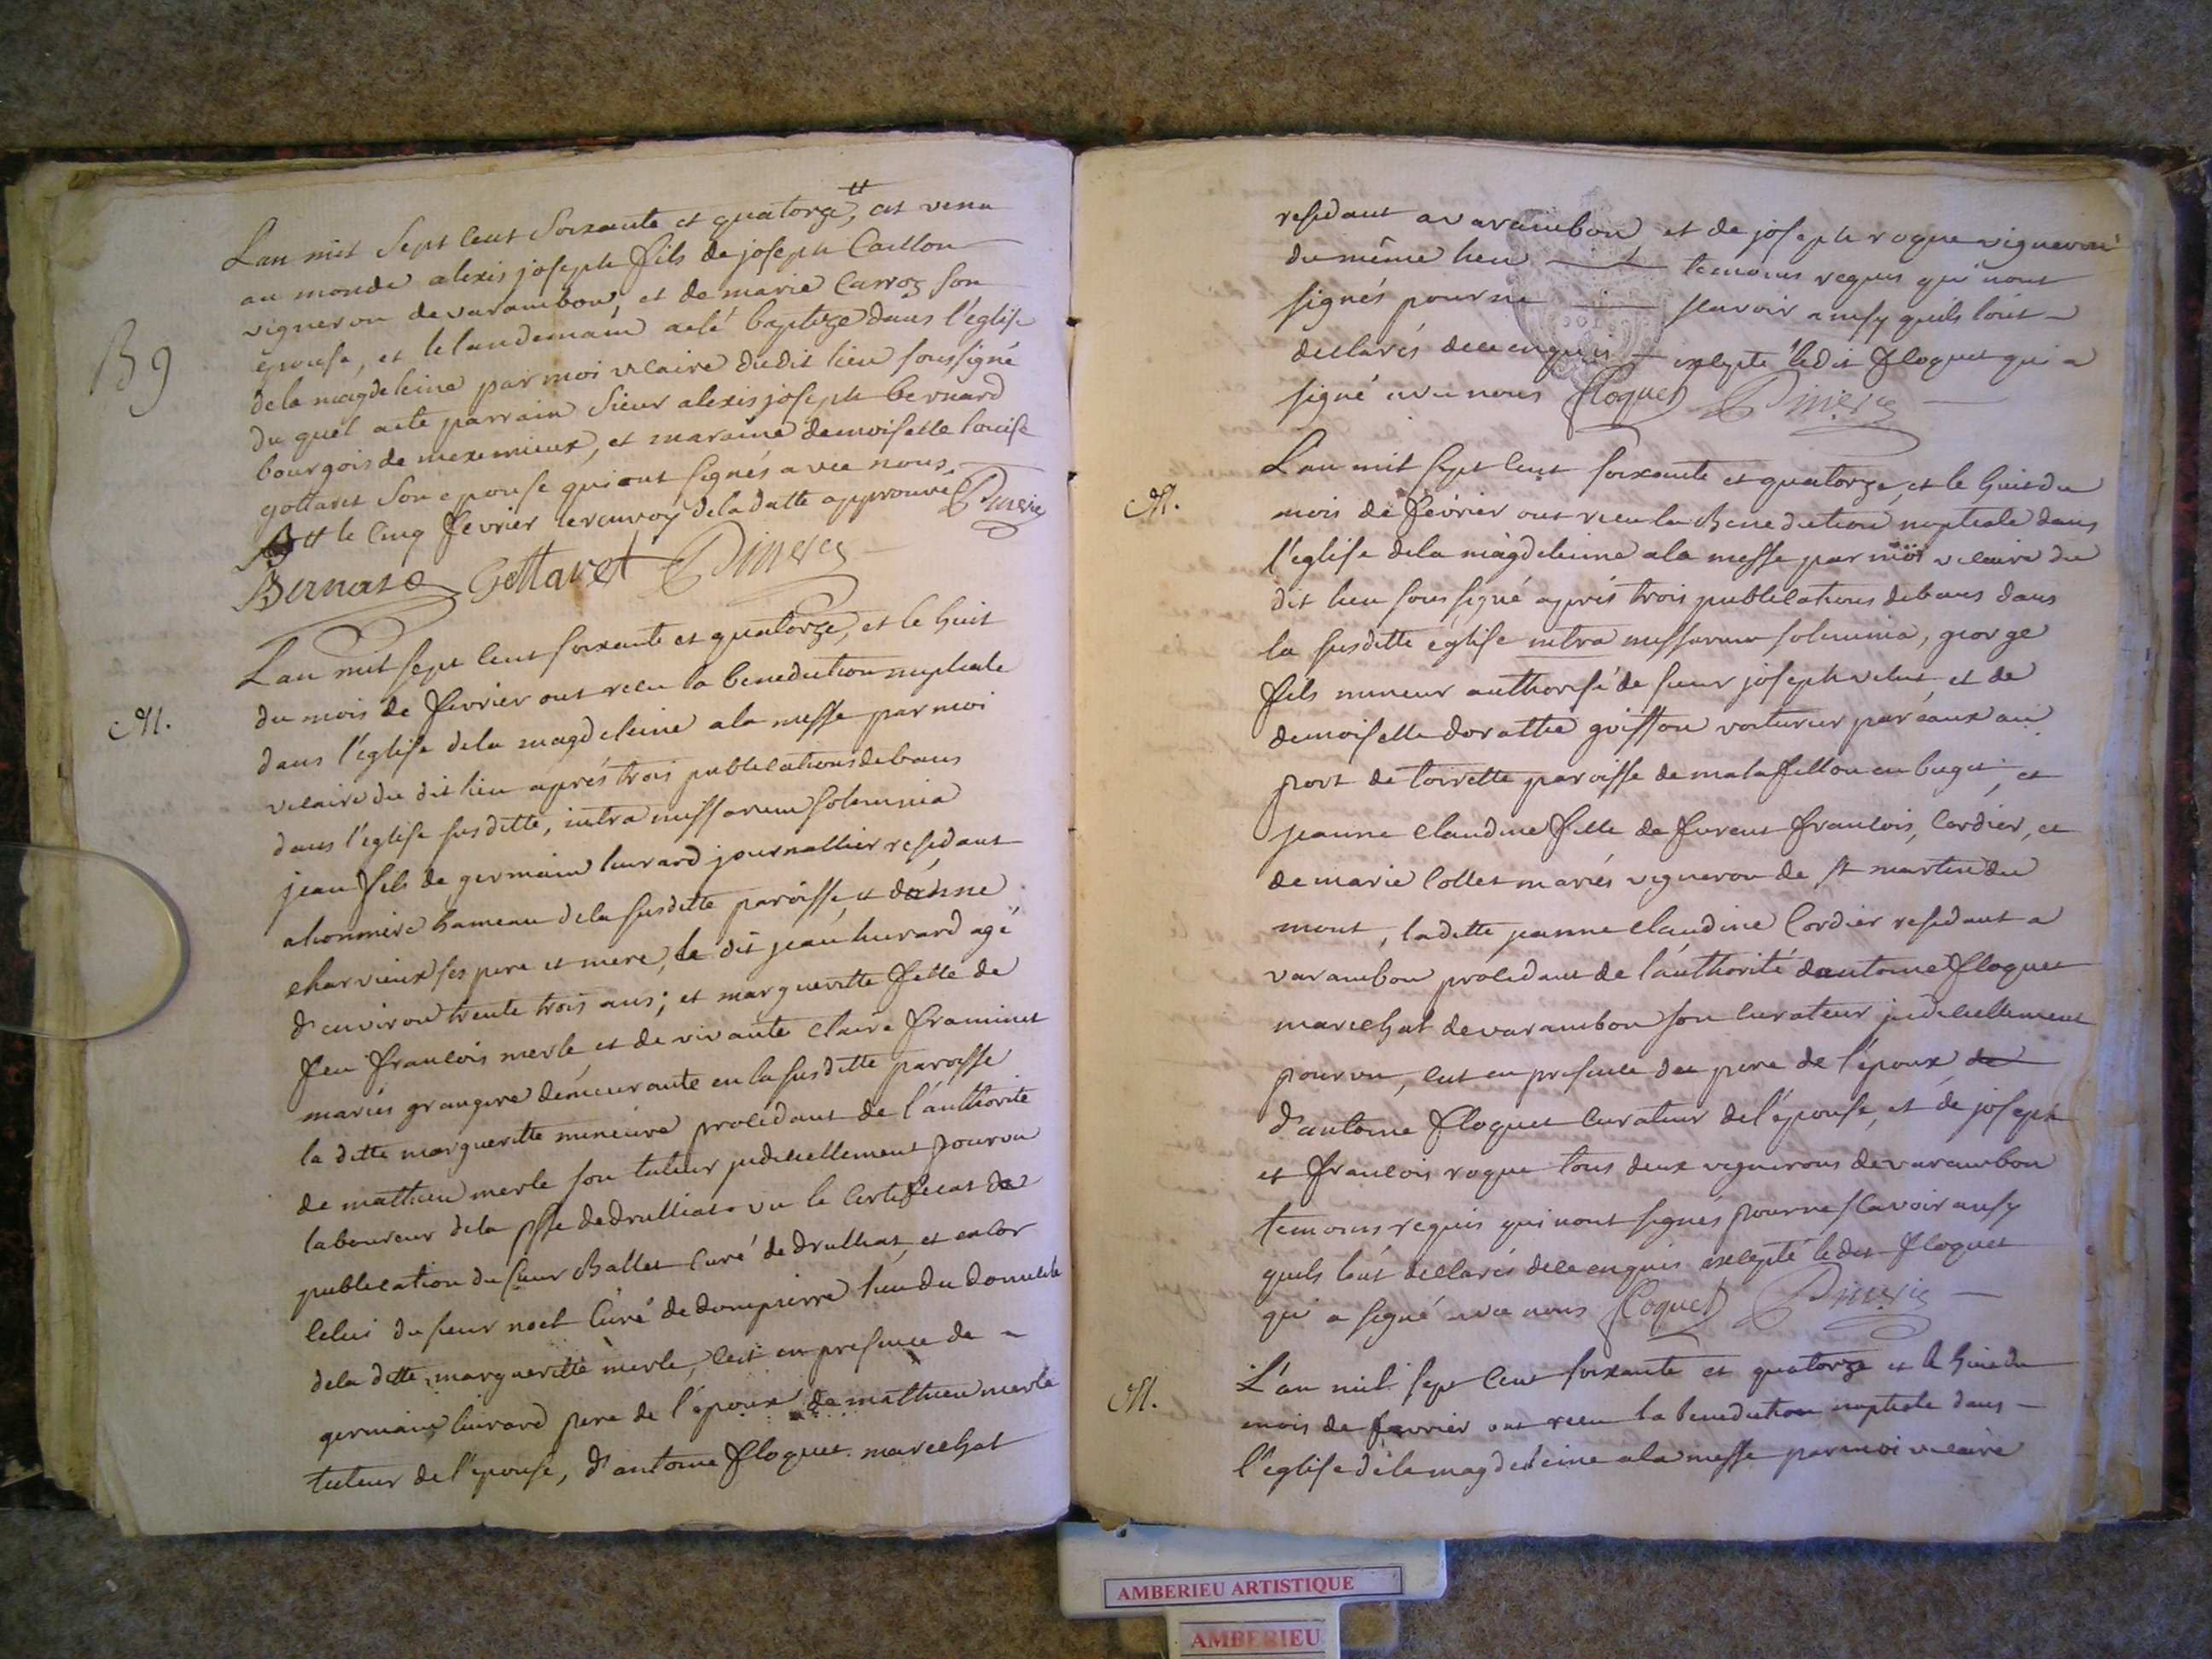 L'an mil sept cent soixante et quatorze, tt est venu
au monde alexis joseph fils de joseph Caillon
vigneron de varambon, et de marie Carroz son
épouse, et le landemain a eté baptizé dans l'église
B 9
de la magdeleine par moi vicaire dudit lieu soussigné
du quel acte parrain sieur alexis joseph bernard
bourgois de meximieux, et maraine demoiselle louise
gottaret son epouse qui ont signés avec nous
tt le cinq fevrier le renvoy de la datte approuvé
Bernard Gottaret
L'an mil sept cent soixante et quatorze, et le huit
du mois de fevrier ont recu la benediction nuptiale
M.
dans l'église de la magdeleine a la messe par moi
vicaire du dit lieu aprés trois publications de bans
dans l'eglise susditte, intra missarum solemnia
jean fils de germain huvard journallier residant
hameau de la susditte paroisse, et danne
charvieux ses pere et mere, le dit jean huvard agé
d'environ trente trois ans; et margueritte fille de
feu francois merle, et de vivante claire framinet
mariés grangere demeurante en la susditte paroisse
la ditte margueritte mineure procédant de l'authorité
de mathieu merle son tuteur judiciellement pourvu
laboureur de la psse de drulliat. vu le certificat de
publication du sieur Ballet curé de drulliat, et encor
celui du sieur noel curé de dompierre lieu du domicile
de la ditte margueritte merle, cest en presence de
germain huvard pere de l'époux de mathieu merle
tuteur de l'epouse, d'antoine floquet marechal
residant a varambon, et de joseph roque vigneron
du même lieu temoins requis qui nont
signés pour ne scavoir ainsy quils l'ont
declarés de ce enquis excepté ledit floquet qui a
signé avec nous floquet
L'an mil sept cent soixante et quatorze, et le huit du
M.
mois de fevrier ont recu la Benediction nuptiale dans
l'eglise de la magdeleine a la messe par moi vicaire du
dit lieu sous signé aprés trois publications de bans dans
la susditte église intra missarum solemnia, george
fils mineur authorisé de sieur joseph velut et de
demoiselle dorathée goiffon voiturier par eaux au
port de toirette paroisse de mataffellon en bugei, et
jeanne claudine fille de furent francois, Cordier, et
de marie Collet mariés vigneron de st martin du
mont, laditte jeanne claudine Cordier residant a
varambon procédant de l'authorité dantoine floquet
marechal de varambon son curateur judiciellement
pourvu, cest en presence du pere de l'époux de
d'antoine floquet curateur de l'épouse, et de joseph
et francois roque tous deux vignerons de varambon
temoins requis qui nont signés pour ne scavoir ainsy
quils l'ont declarés de ce enquis excepté ledit floquet
qui a signé avec nous floquet
L'an mil sept cent soixante et quatorze et le huit du
M.
mois de fevrier ont recu la benediction nuptiale dans
l'eglise de la magdeleine a la messe par moi vicaire
AMBERIEU ARTISTIQUE
AMBERIEU